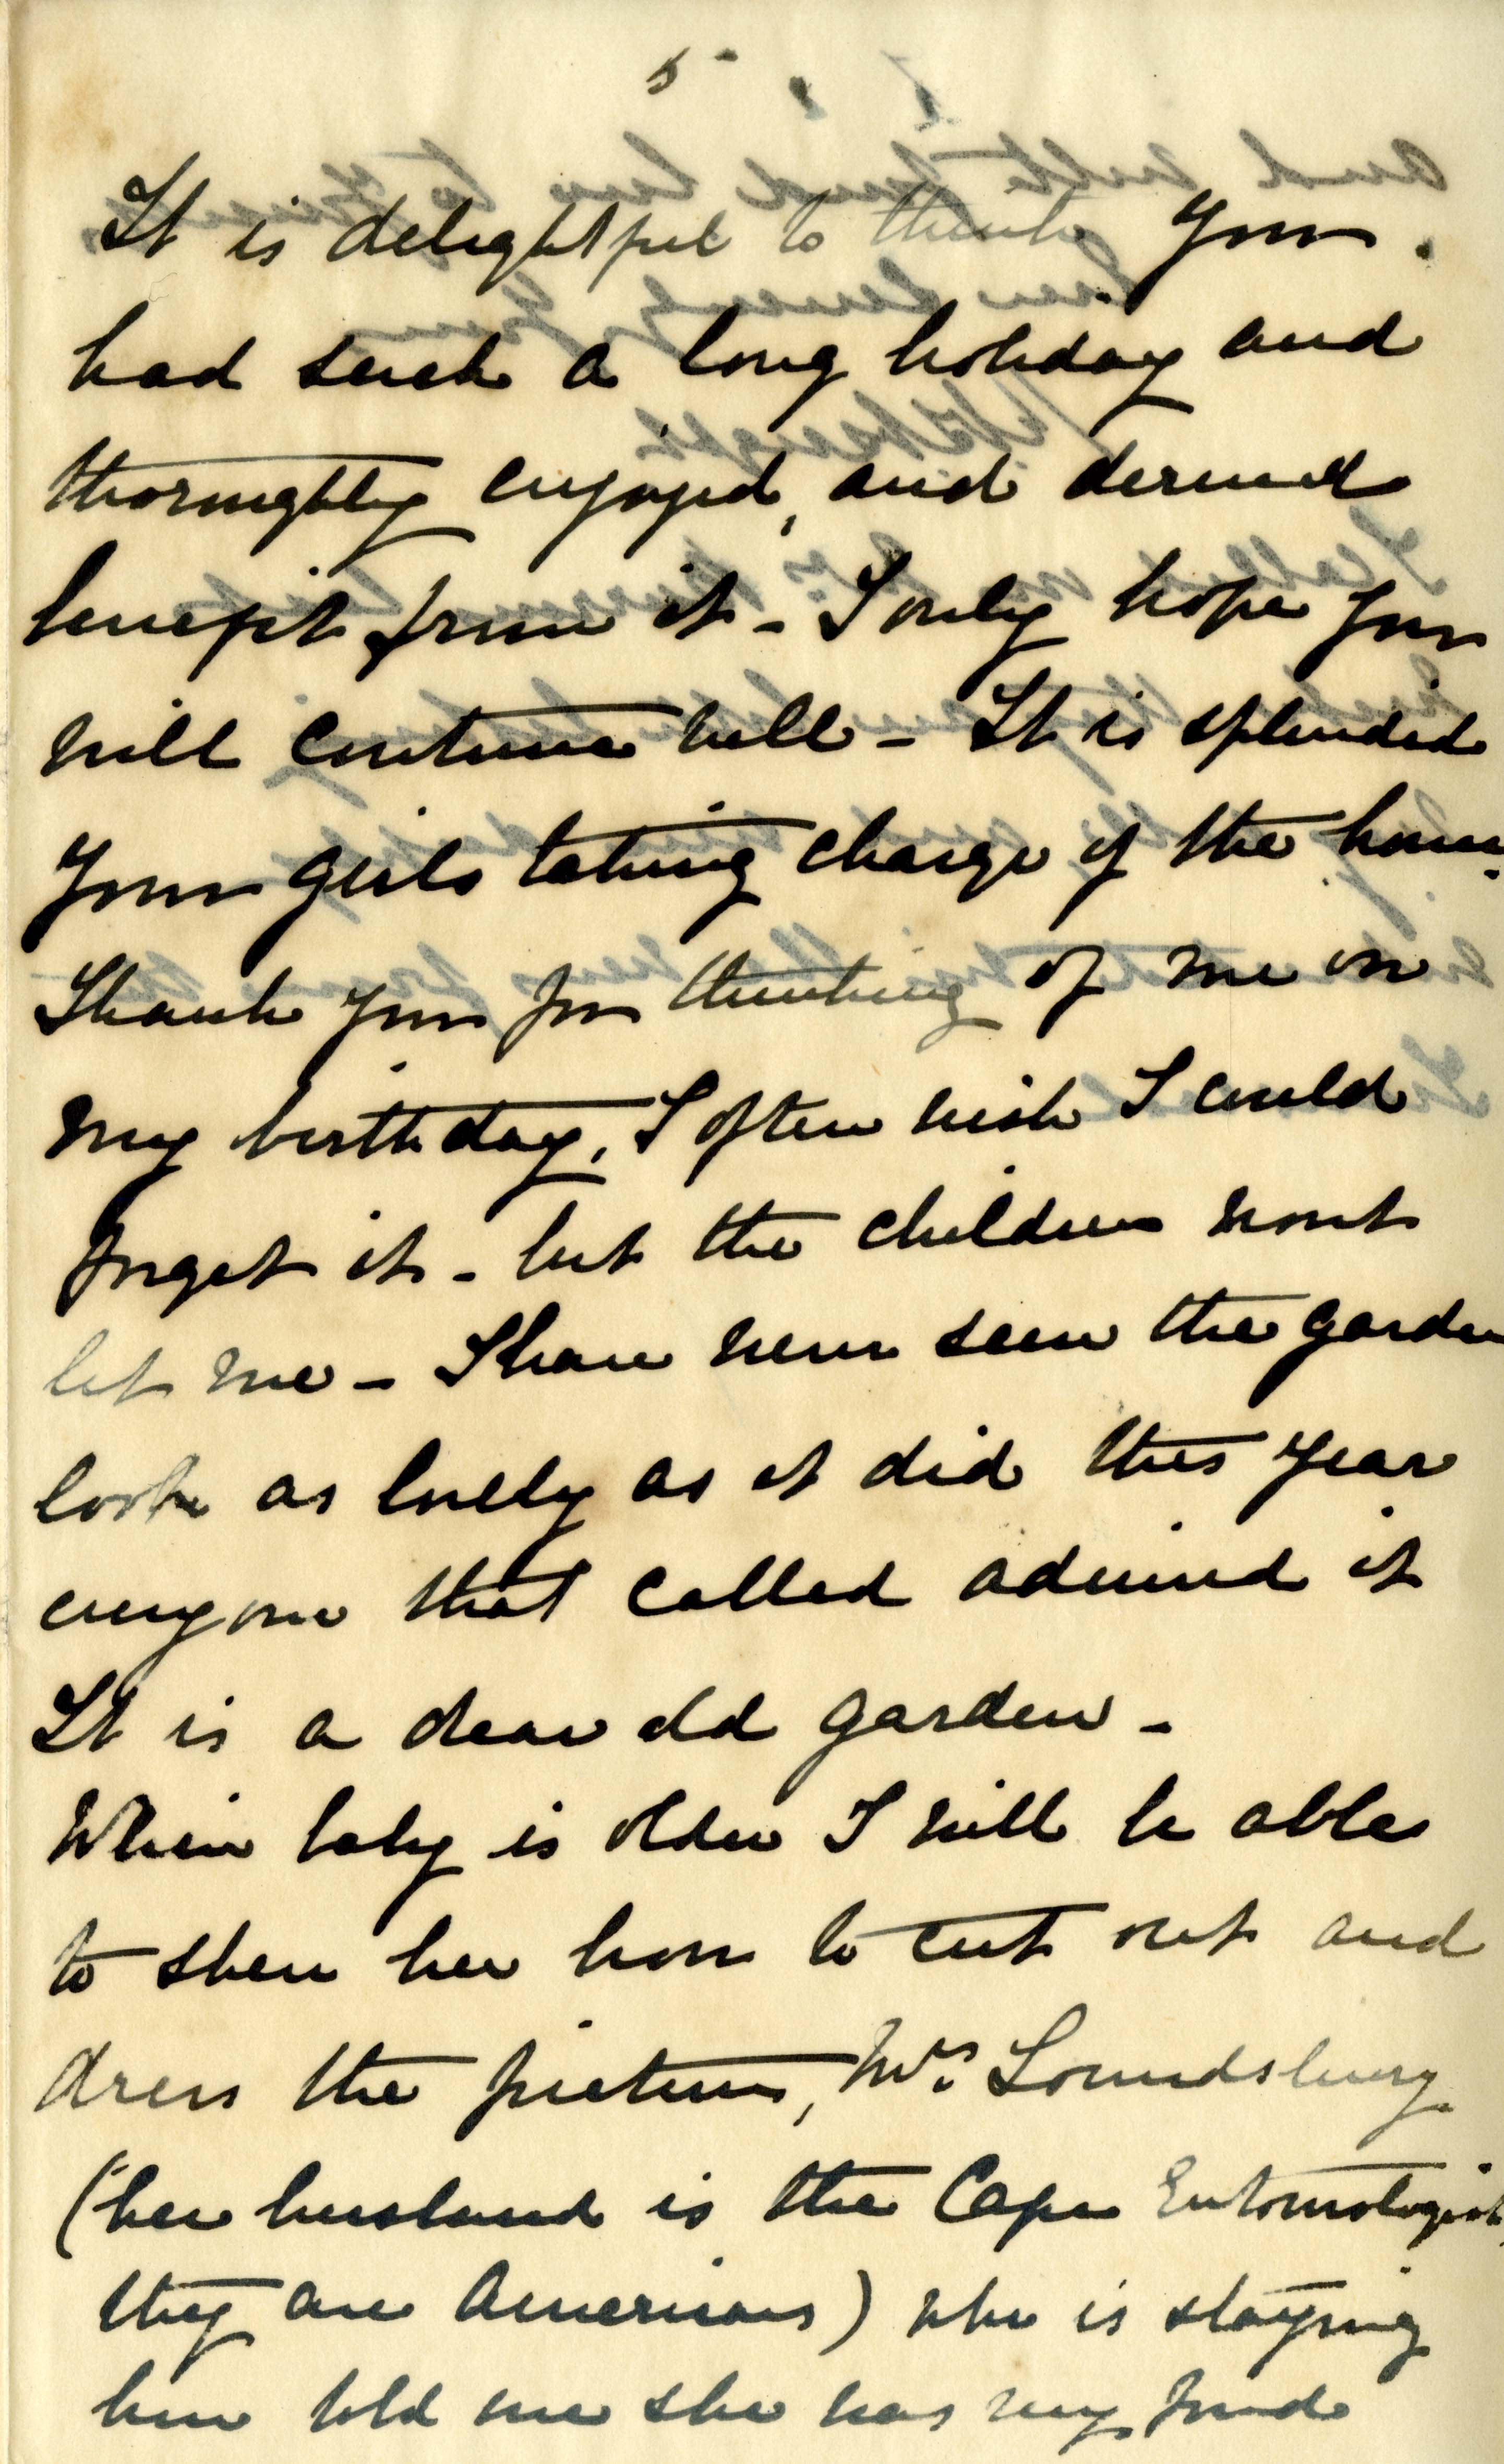 5-
It is delightful to think you
had such a long holiday and
thoroughly enjoyed, and derived
benefit from it - I only hope you
will continue well - It is splendid
your girls taking charge of the house.
Thank you for thinking of me on
my birthday, I often wish I could
forget it - but the children wont
let me - I have never seen the garden
look as lovely as it did this year
everyone that called admired it
It is a dear old garden -
When baby is older I will be able
to shew her how to cut out and
dress the pictures, Mrs Loundsbury
(her husband is the Cape Entomologist,
they are Americans) who is staying
here told me she was very fond